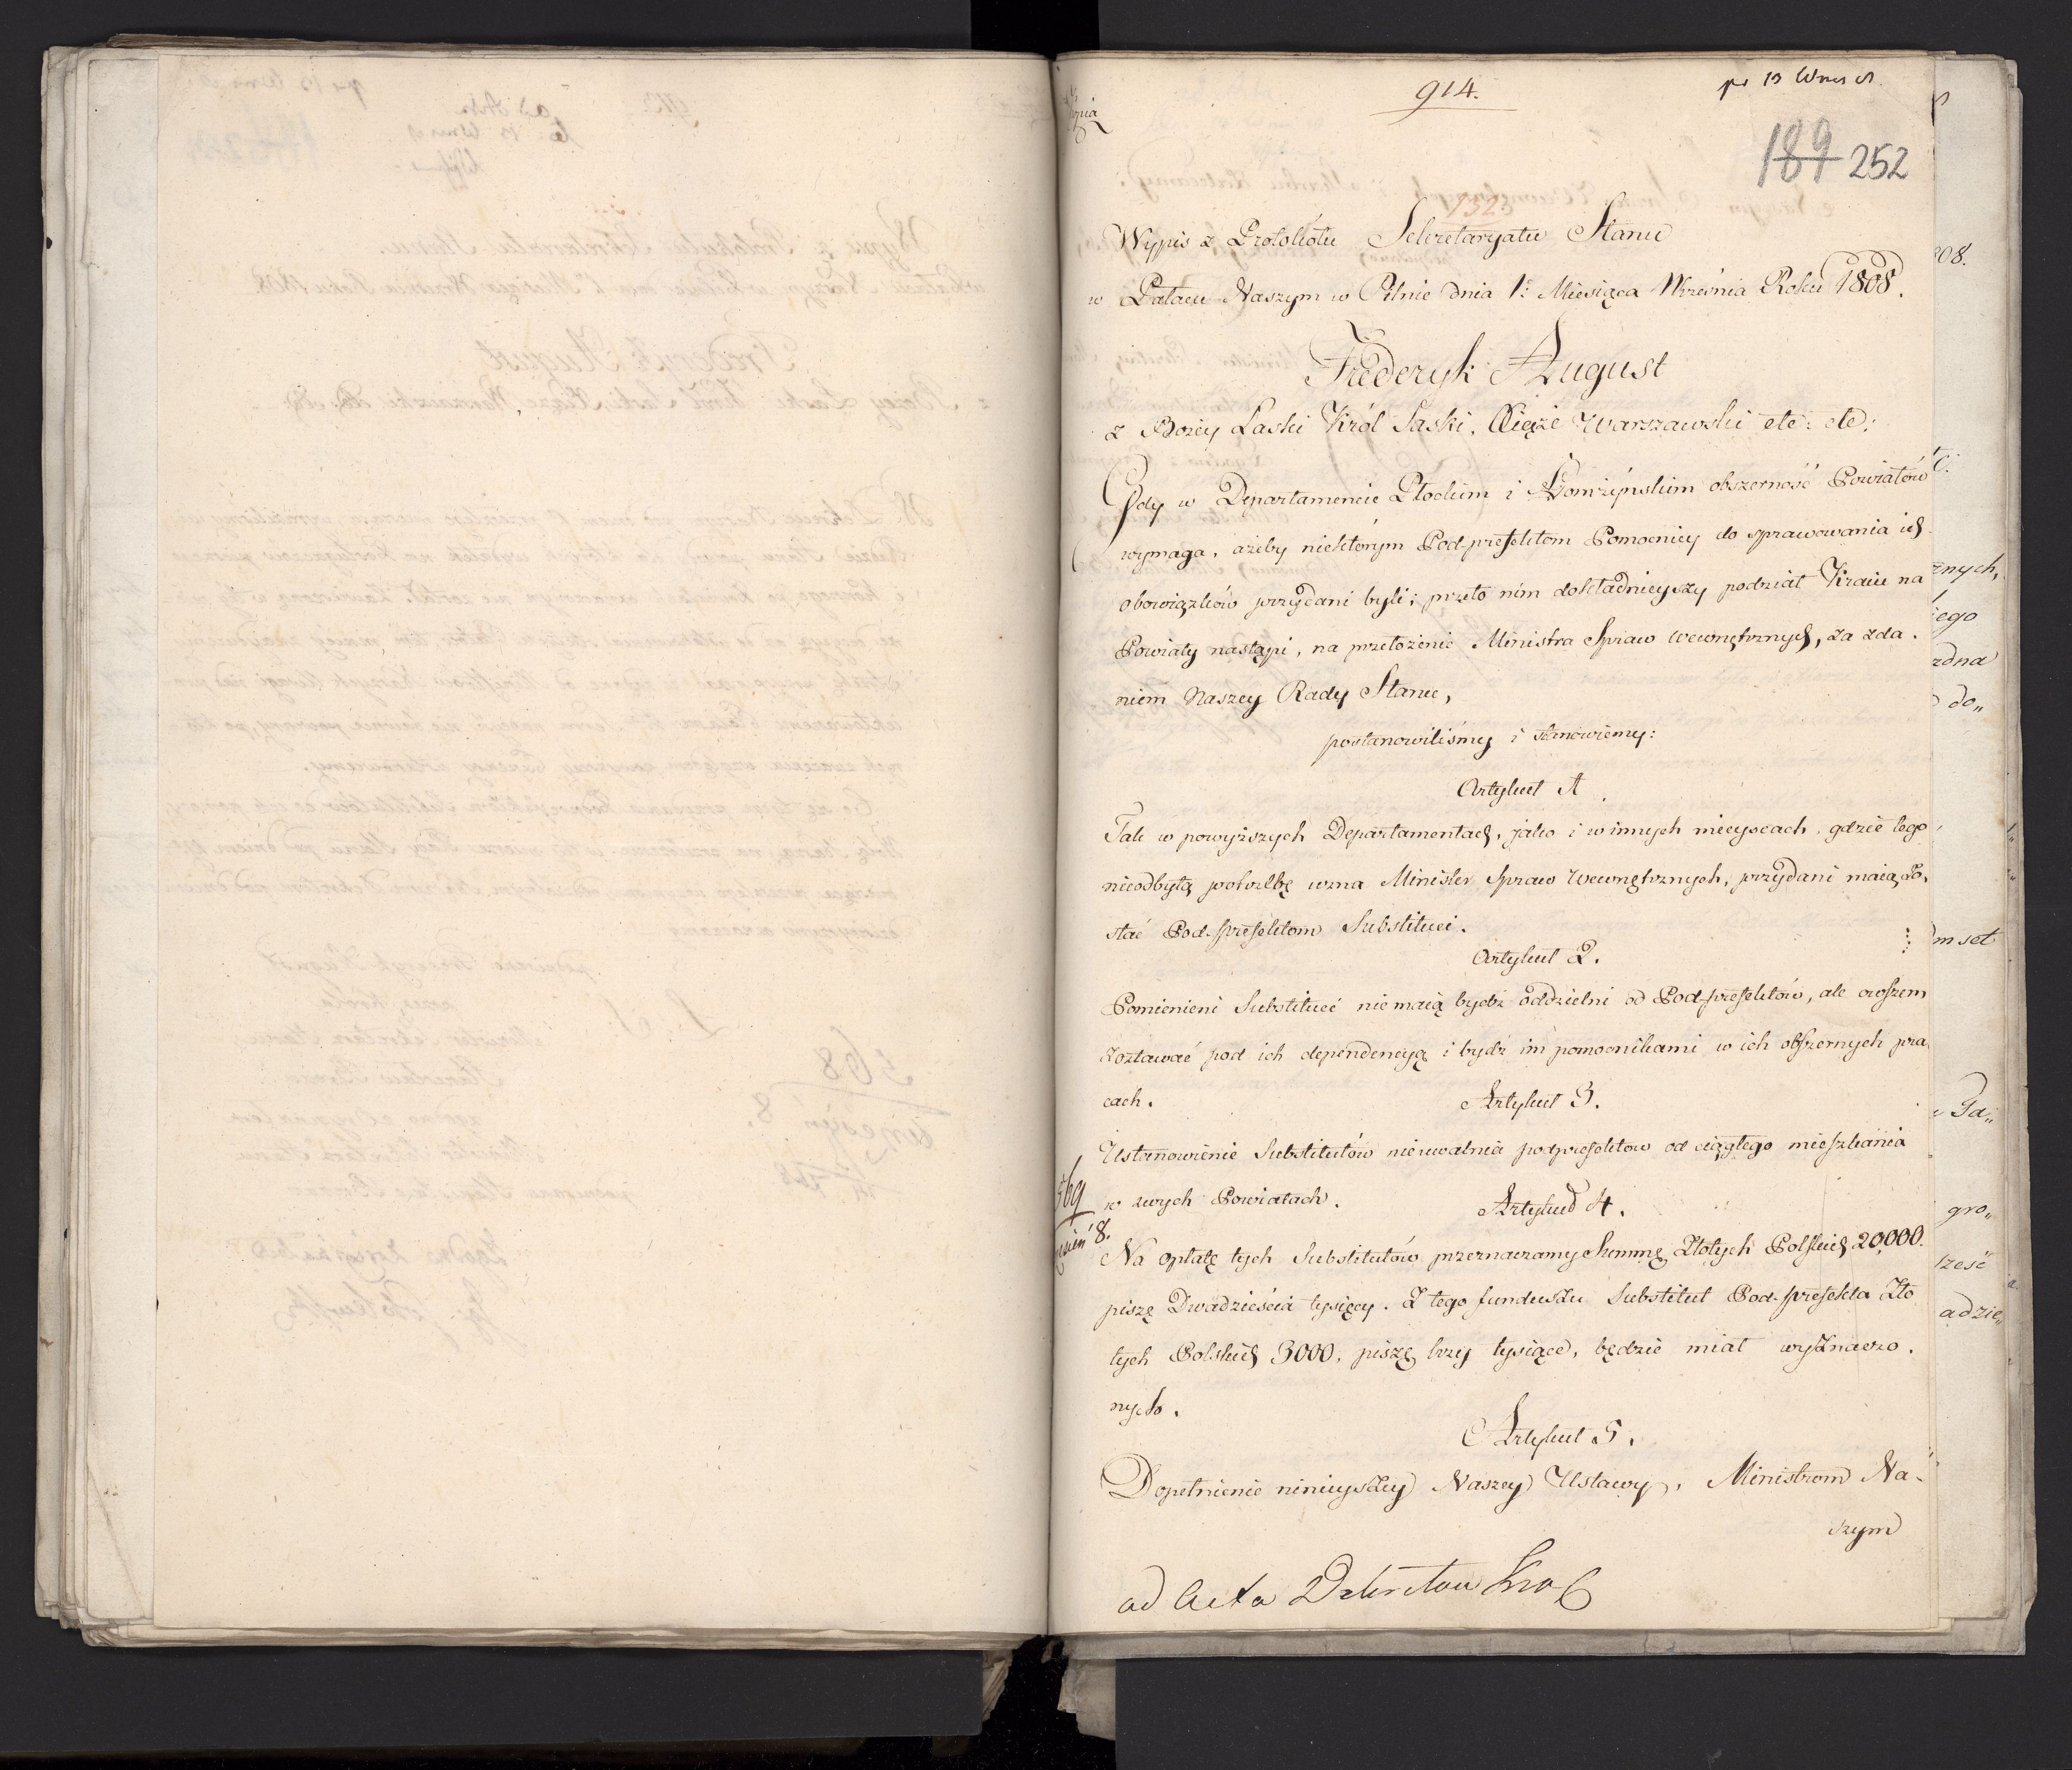 914.
pr 13 Wrześ
189 252
132
Wypis z Protokółu Sekretaryatu Stanu
w Pałacu Naszym w Pilnic dnia 1º Miesiąca Września Roku 1808.
Fryderyk August
z Bożey Łaski Król Saski, Xiąże Warszawski etc: etc:
Gdy w Departamencie Płockim i Łomżyńskim obszerność Powiatów
wymaga, ażeby niektórym Podprefektom Pomocnicy do sprawowania ich
obowiązków przydani byli; przeto nim dokładnieyszy podział Kraiu na
Powiaty nastąpi, na przełożenie Ministra Spraw Wewnętrznych, za zda.
niem Naszey Rady Stanu,
postanowiliśmy i stanowiemy:
Artykuł 1
Tak w powyższych Departamentach, jako i w innych mieyscach, gdzie tego
nieodbytą potrzebę uzna Minister Spraw Wewnętrznych, przydani maią zo,
stać Pod-prefektom Substituci.
Artykuł 2.
Pomienieni Substituci nie maią bydź oddzielni od Pod-prefektów, ale owszem
zoztawać pod ich dependencyą i bydź im pomocnikami w ich obszernych pra
cach.
Artykuł 3.
Ustanowienie Substitutów nieuwalnia podprefektow od ciągłego mieszkania
w swych Powiatach.
Artykuł 4.
569
8.
Na opłatę tych Substitutów przeznaczamy Summę Złotych Polskich 20,000.
piszę Dwadzieścia tysięcy. Z tego funduszu Substitut Pod-prefekta Zło
tych Polskich 3000, piszę trzy tysiące, będzie miał wyznaczo.
nych.
Artykuł 5.
Dopełnienie ninieyszey Naszey Ustawy, Ministrom Na-
szym
ad Acta Dekretow